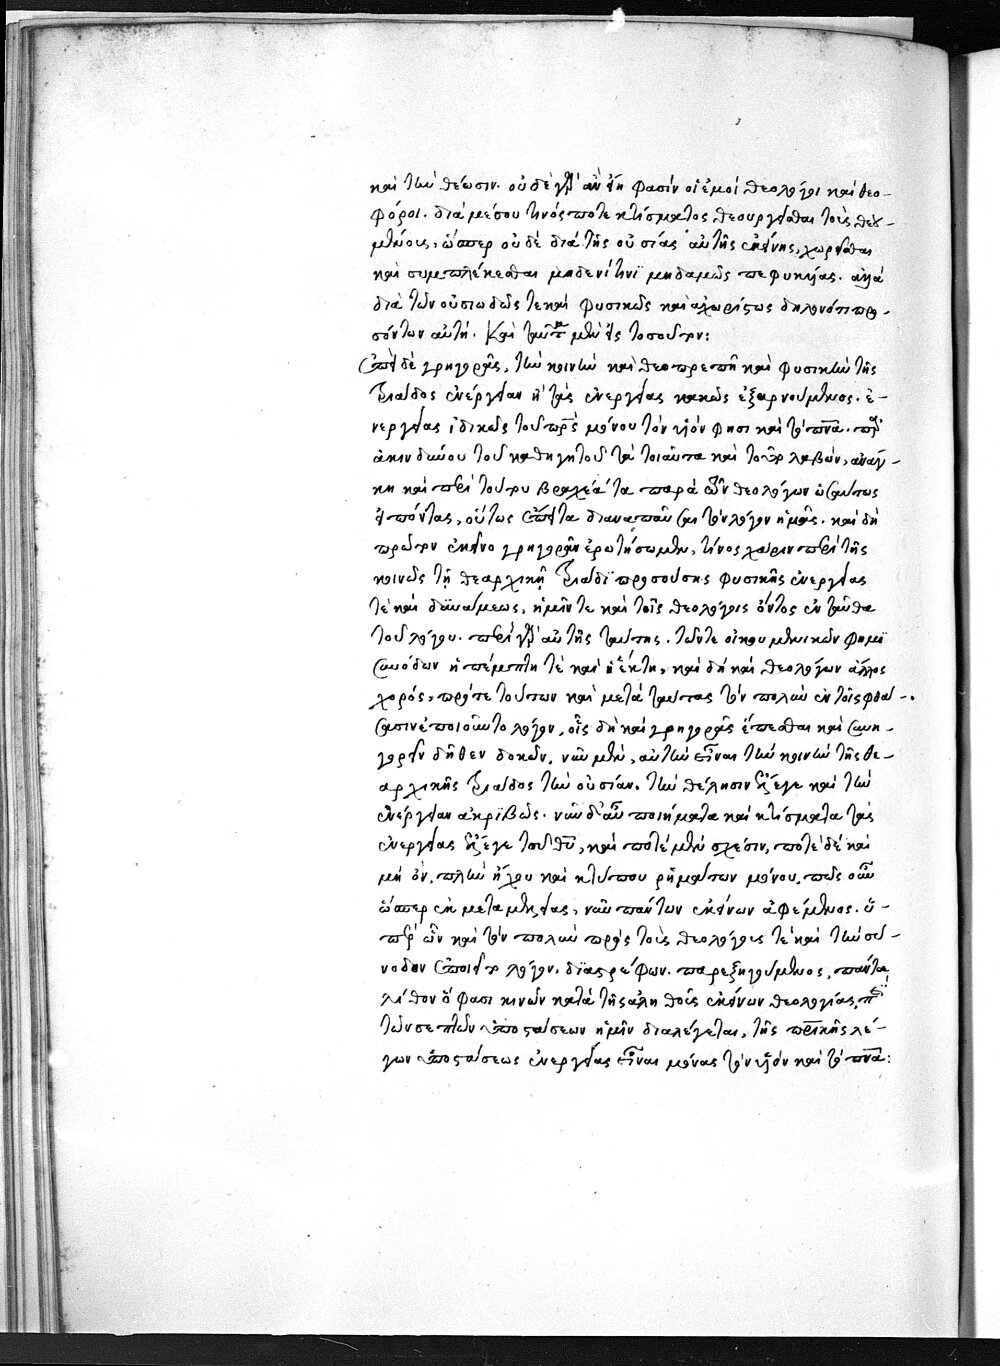 καὶ τὴν θέωσιν. οὐδὲ γὰρ ἂν εἴη φασὶν οἱ ἐμοὶ θεολόγοι καὶ θεο-
φόροι. διὰ μέσου τινός ποτε κτίσματος θεουργεῖσθαι τοὺς θεου-
μένους, ὥσπερ οὐδὲ διὰ τῆς οὐσίας αὐτῆς ἐκείνης, χωρεῖσθαι
καὶ συμπλέκεσθαι μηδενί τινι μηδαμῶς πεφυκυίας. ἀλλὰ
διὰ τῶν οὐσιωδῶς τε καὶ φυσικῶς καὶ ἀχωρίστως δηλονότι προ-
σόντων αὐτῇ. Καὶ ταῦτα μὲν εἰς τοσοῦτον:
Ἐπεὶ δὲ γρηγορᾶς, τὴν κοινὴν καὶ θεοπρεπῆ καὶ φυσικὴν τῆς
τριάδος ἐνέργειαν ἢ τὰς ἐνεργείας κακῶς ἐξαρνούμενος. ἐ-
νεργείας ἰδικῶς τοῦ πρς μόνου τὸν υἱόν φησι καὶ τὸ πνα.
ἀκινδύνου τοῦ καθηγητοῦ τὰ τοιαῦτα καὶ τοῦτο λαβὼν, ἀνάγ-
κη καὶ περὶ τούτου βραχέα τὰ παρὰ τῶν θεολόγων ὡσαύτως
εἰπόντας, οὕτως ἔπειτα διαναπαῦσαι τὸν λόγον ἡμᾶς. καὶ δὴ
πρῶτον ἐκεῖνο γρηγορᾶν ἐρωτήσωμεν, τίνος χάριν περὶ τῆς
κοινῶς τῇ θεαρχικῇ τριάδι προσούσης φυσικῆς ἐνεργείας
τὲ καὶ δυνάμεως, ἡμῖν τε καὶ τοῖς θεολόγοις ὄντος ἐνταῦθα
τοῦ λόγου. περὶ γὰρ αὐτῆς ταύτης. τῶν τε οἰκουμενικῶν φημὶ
συνόδων ἡ πέμπτη τὲ καὶ ἡ ἕκτη, καὶ δὴ καὶ θεολόγων ἄλλος
χορός, πρό τε τούτων καὶ μετὰ ταύτας τὸν πολὺν ἐν τοῖς φθά-
σασιν ἐποιοῦντο λόγον, οἷς δὴ καὶ γρηγορᾶς ἕπεσθαι καὶ συνη-
γορεῖν δῆθεν δοκῶν, νῦν μὲν, αὐτὴν εἶναι τὴν κοινὴν τῆς θε-
αρχικῆς τριάδος τὴν οὐσίαν. τὴν θέλησιν ἔλεγε καὶ τὴν
ἐνέργειαν ἀκριβῶς. νῦν δ' αὖ ποιήματα καὶ κτίσματα τὰς
ἐνεργείας ἔλεγε τοῦ θυ, καὶ ποτὲ μὲν σχέσιν, ποτὲ δὲ καὶ
μὴ ὄν, πλὴν ἤχου καὶ κτύπου ῥημάτων μόνου. πῶς οὖν
ὥσπερ ἐκ μεταμελείας, νῦν πάντων ἐκείνων ἀφέμενος. ὑ-
πὲρ ὧν καὶ τὸν πολὺν πρὸς τοὺς θεολόγους τὲ καὶ τὴν σύ-
νοδον ἐποιεῖτο λόγον. διαστρέφων. παρεξηγούμενος, πάντα
λίθον ὅ φασι κινῶν κατὰ τῆς ἀληθοῦς ἐκείνων θεολογίας, περὶ
τῶν σεπτῶν ὑποστάσεων ἡμῖν διαλέγεται, τῆς πρικῆς λέ-
γων ὑποστάσεως ἐνεργείας εἶναι μόνας τὸν υἱὸν καὶ τὸ πνα: